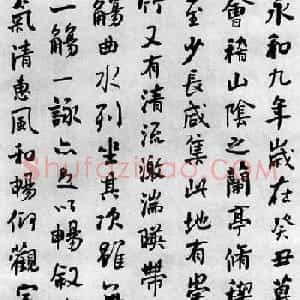 永和九年歲在癸丑莫
會稽山陰之蘭亭脩禊
至少長咸集此地有崇
竹又有清流激湍暎帶
觴曲水列坐其次雖無
一觴一詠亦足以暢敘
氣清惠風和暢仰觀宇